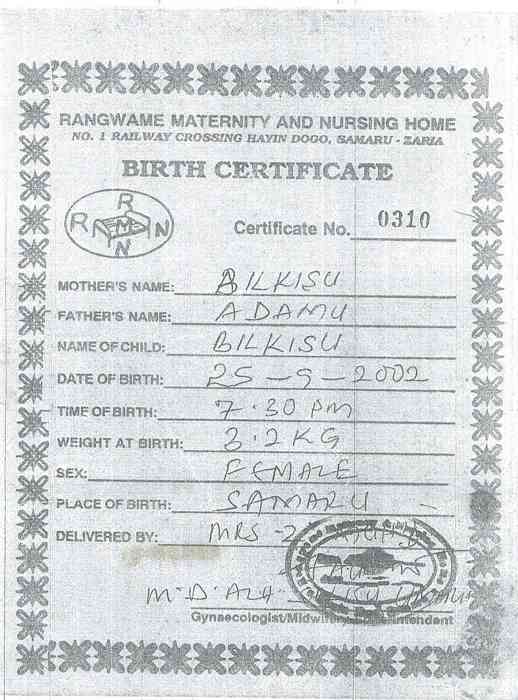 RANGWAME MATERNITY AND NURSING HOME
NO. 1 RAILWAY CROSSING HAYIN DOGO, SAMARU - ZARIA
BIRTH CERTIFICATE
R
R M N
N
Certificate No. 0310
MOTHER'S NAME: BILKISU
FATHER'S NAME: ADAMU
NAME OF CHILD: BILKISU
DATE OF BIRTH: 25 - 9 - 2002
TIME OF BIRTH: 7.30 PM
WEIGHT AT BIRTH: 3.2 KG
SEX: FEMALE
PLACE OF BIRTH: SAMARU
DELIVERED BY: MRS
Gynaecologist/